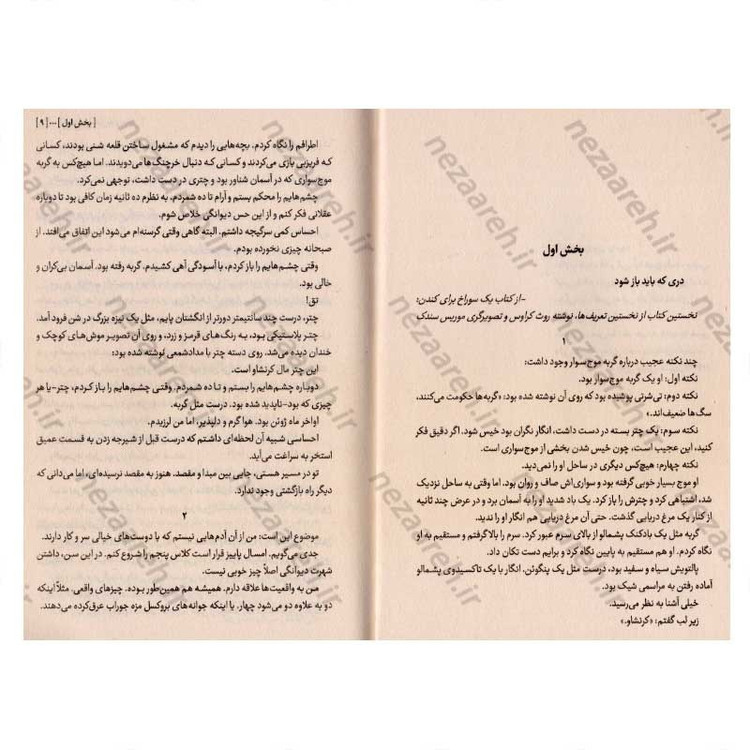 بخش اول
دری که باید باز شود
-از کتاب یک سوراخ برای کندن:
نخستین کتاب از نخستین تعریف‌ها، نوشته روث کراوس و تصویرگری موریس سندک
۱
چند نکته عجیب درباره گربه موج‌سوار وجود داشت:
نکته اول: او یک گربه موج‌سوار بود.
نکته دوم: تی‌شرتی پوشیده بود که روی آن نوشته شده بود: «گربه‌ها حکومت می‌کنند،
سگ‌ها ضعیف‌اند.»
نکته سوم: یک چتر بسته در دست داشت، انگار نگران بود خیس شود. اگر دقیق فکر
کنید، این عجیب است، چون خیس شدن بخشی از موج‌سواری است.
نکته چهارم: هیچ‌کس دیگری در ساحل او را نمی‌دید.
او موج بسیار خوبی گرفته بود و سواری‌اش صاف و روان بود. اما وقتی به ساحل نزدیک
شد، اشتباهی کرد و چترش را باز کرد. یک باد شدید او را به آسمان برد و در عرض چند ثانیه
از کنار یک مرغ دریایی گذشت. حتی آن مرغ دریایی هم انگار او را ندید.
گربه مثل یک بادکنک پشمالو از بالای سرم عبور کرد. سرم را بالا گرفتم و مستقیم به او
نگاه کردم. او هم مستقیم به پایین نگاه کرد و برایم دست تکان داد.
پالتویش سیاه و سفید بود، درست مثل یک پنگوئن. انگار با یک تاکسیدوی پشمالو
آماده رفتن به مراسمی شیک بود.
خیلی آشنا به نظر می‌رسید.
زیر لب گفتم: «کرنشاو.»
[ بخش اول ]...[ ۹ ]
اطرافم را نگاه کردم. بچه‌هایی را دیدم که مشغول ساختن قلعه شنی بودند، کسانی
که فریزبی بازی می‌کردند و کسانی که دنبال خرچنگ‌ها می‌دویدند. اما هیچ‌کس به گربه
موج‌سواری که در آسمان شناور بود و چتری در دست داشت، توجهی نمی‌کرد.
چشم‌هایم را محکم بستم و آرام تا ده شمردم. به نظرم ده ثانیه زمان کافی بود تا دوباره
عقلانی فکر کنم و از این حس دیوانگی خلاص شوم.
احساس کمی سرگیجه داشتم. البته گاهی وقتی گرسنه‌ام می‌شود این اتفاق می‌افتد. از
صبحانه چیزی نخورده بودم.
وقتی چشم‌هایم را باز کردم، با آسودگی آهی کشیدم. گربه رفته بود. آسمان بی‌کران و
خالی بود.
تق!
چتر، درست چند سانتیمتر دورتر از انگشتان پایم، مثل یک نیزه بزرگ در شن فرود آمد.
چتر پلاستیکی بود، به رنگ‌های قرمز و زرد، و روی آن تصویر موش‌های کوچک و
خندان دیده می‌شد. روی دسته چتر با مدادشمعی نوشته شده بود:
این چتر مال کرنشاو است.
دوباره چشم‌هایم را بستم و تا ده شمردم. وقتی چشم‌هایم را باز کردم، چتر-یا هر
چیزی که بود-ناپدید شده بود. درست مثل گربه.
اواخر ماه ژوئن بود. هوا گرم و دلپذیر، اما من لرزیدم.
احساسی شبیه آن لحظه‌ای داشتم که درست قبل از شیرجه زدن به قسمت عمیق
استخر به سراغت می‌آید.
تو در مسیر هستی، جایی بین مبدا و مقصد. هنوز به مقصد نرسیده‌ای، اما می‌دانی که
دیگر راه بازگشتی وجود ندارد.
۲
موضوع این است: من از آن آدم‌هایی نیستم که با دوست‌های خیالی سر و کار دارند.
جدی می‌گویم. امسال پاییز قرار است کلاس پنجم را شروع کنم. در این سن، داشتن
شهرت دیوانگی اصلاً چیز خوبی نیست.
من به واقعیت‌ها علاقه دارم. همیشه هم همین‌طور بوده. چیزهای واقعی. مثلاً اینکه
دو به علاوه دو می‌شود چهار. یا اینکه جوانه‌های بروکسل مزه جوراب عرق‌کرده می‌دهند.
nezaareh.ir